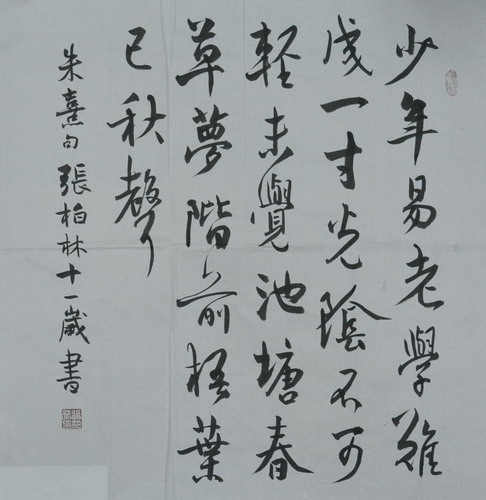 少年易老學難
成一寸光陰不可
輕未覺池塘春
草夢階前梧葉
已秋聲
朱熹句張柏林十一歲書